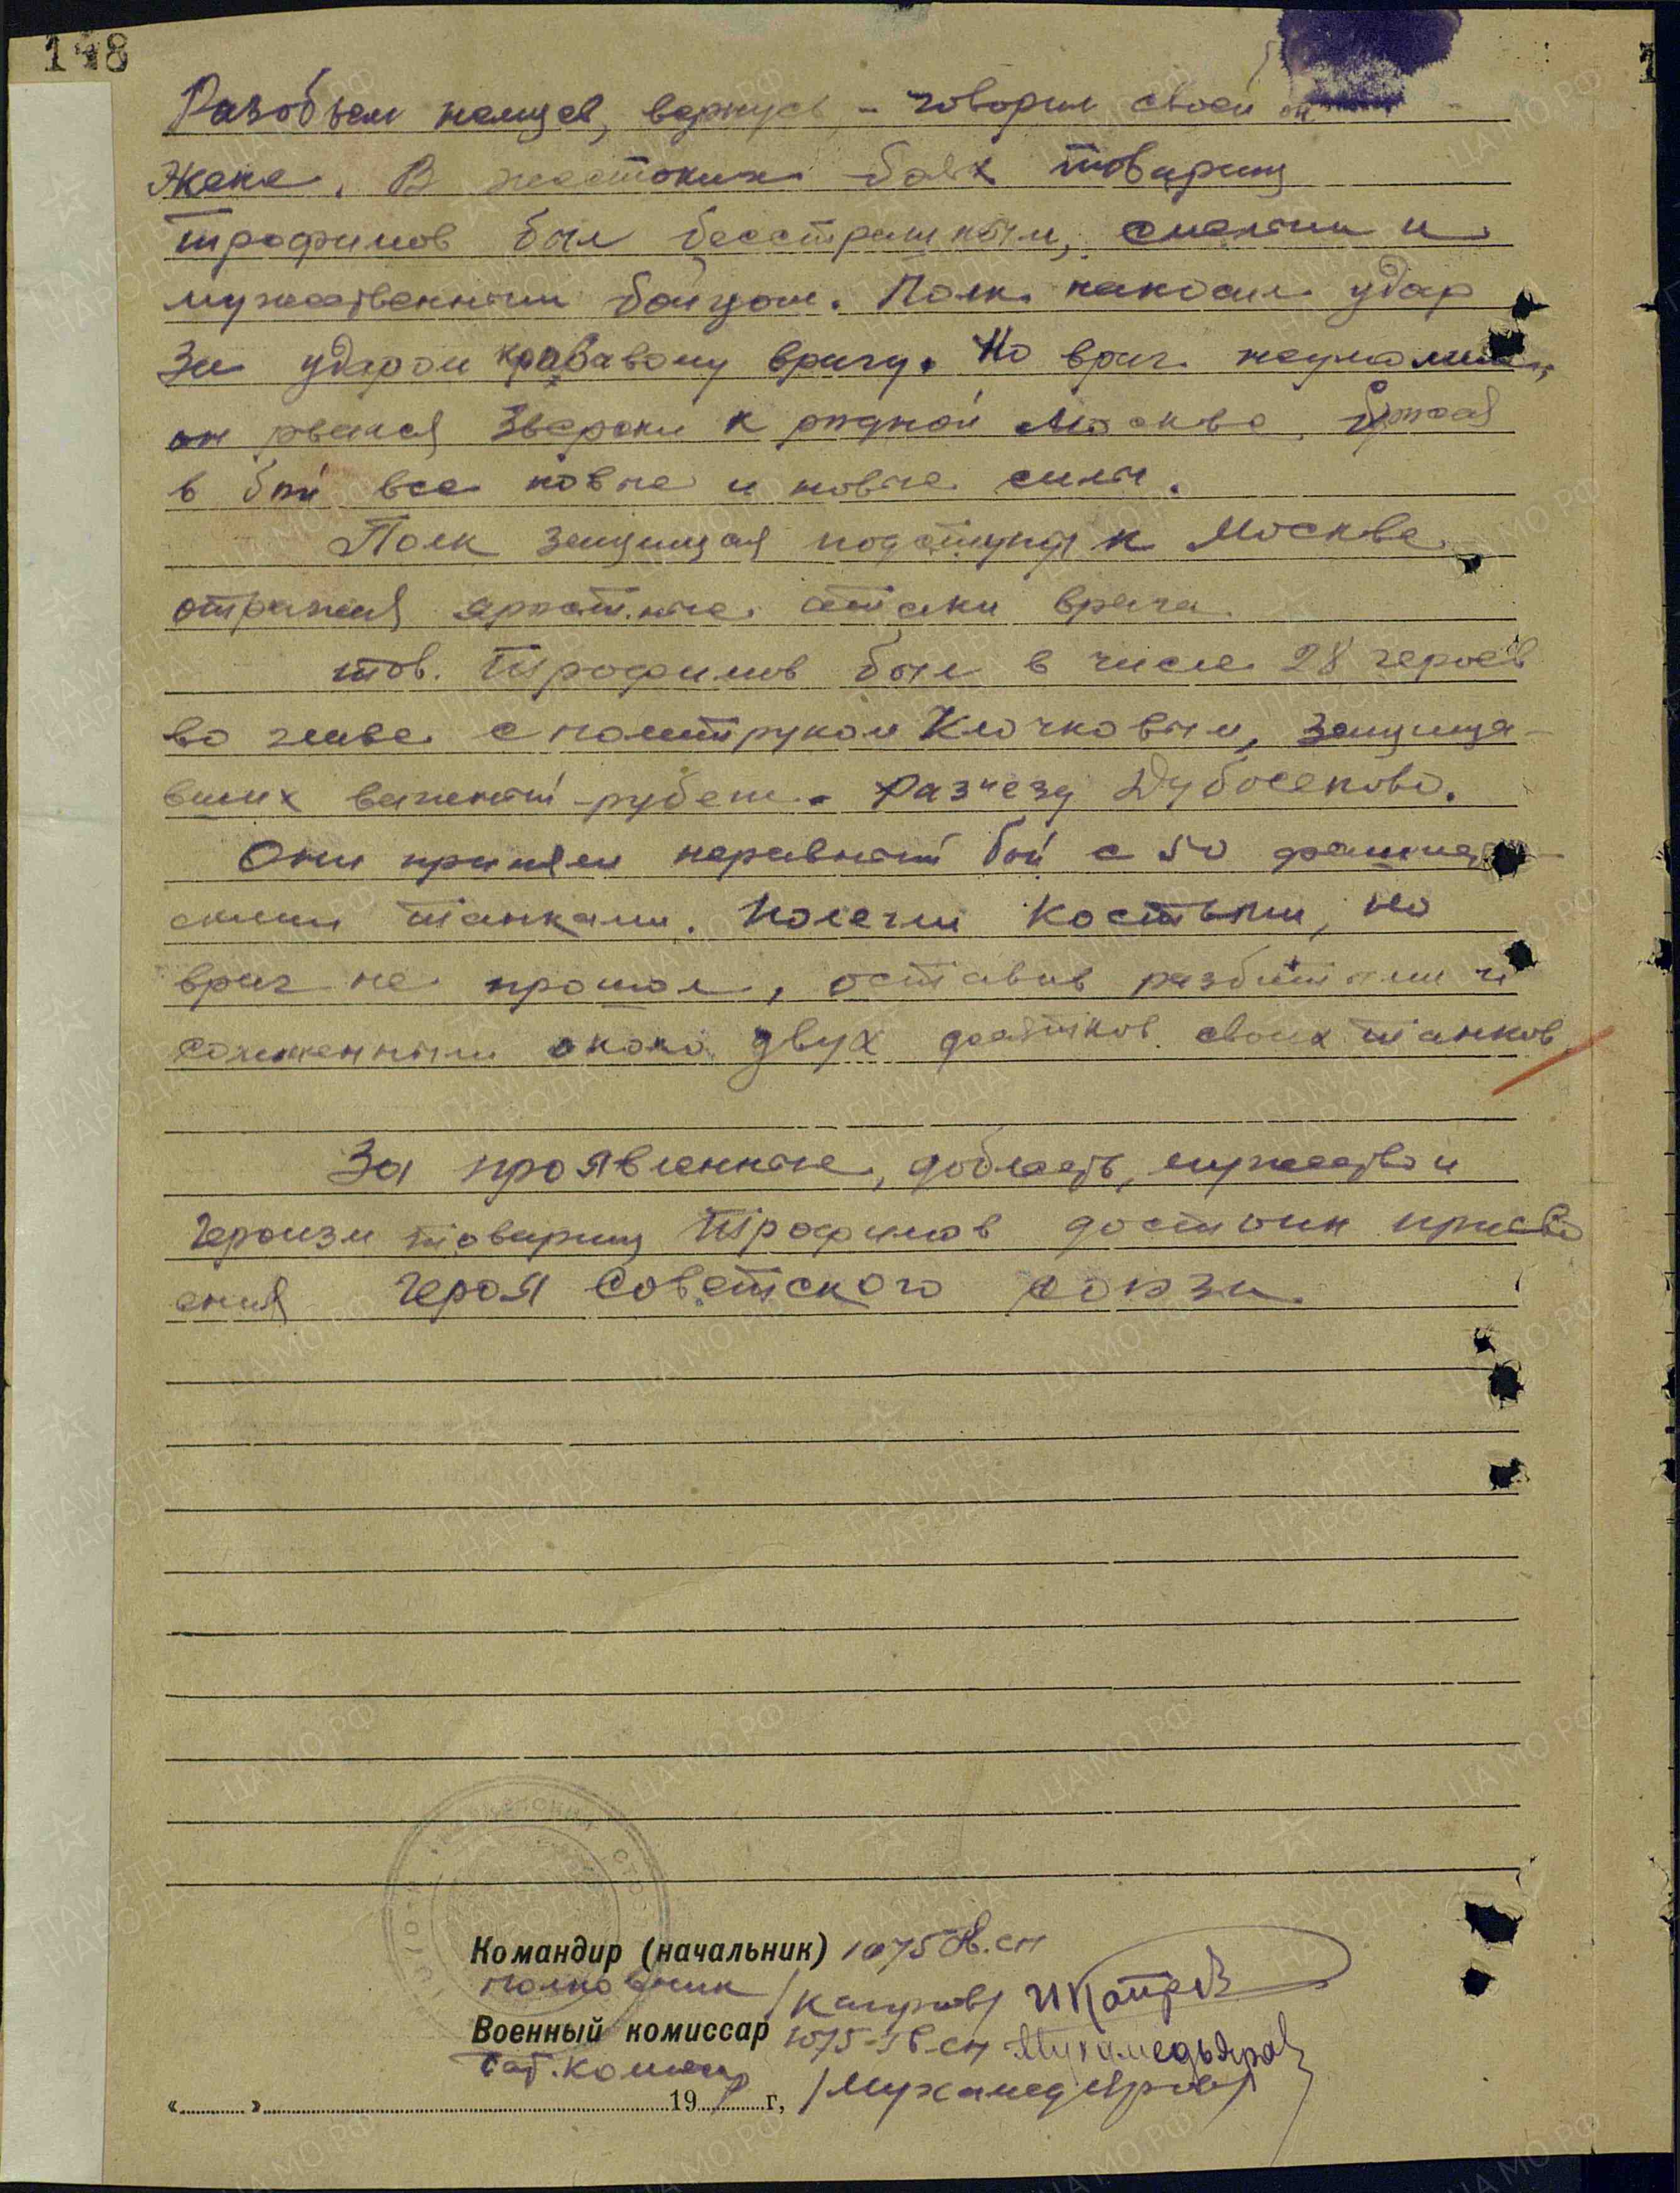 148
Разобьем немцев, вернусь, - говорил своей он
жене. В жестоких боях товарищ
Трофимов был бесстрашным, смелым и
мужественным бойцом. Полк наносил удар
за ударом кровавому врагу. Но враг неумолим,
он рвался зверски к родной Москве, бросая
в бой все новые и новые силы.
Полк защищая подступы к Москве
отражая яростные атаки врага.
тов. Трофимов был в числе 28 героев
во главе с политруком Клочковым, защища-
вших важный рубеж - разъезд Дубосеково.
Они приняли неравный бой с 50 фашист-
скими танками. Полегли костьми, но
враг не прошел, оставив разбитыми и
сожженными около двух десятков своих танков
За проявленные, доблесть, мужество и
героизм товарищ Трофимов достоин присво
ения Героя Советского союза
Командир (начальник) 1075 гв. сп
полковник /Капров/ ИКапров
Военный комиссар 1075 гв. сп Мухамедьяров
бат. комиссар /Мухамедьяров/
« » 19 г,